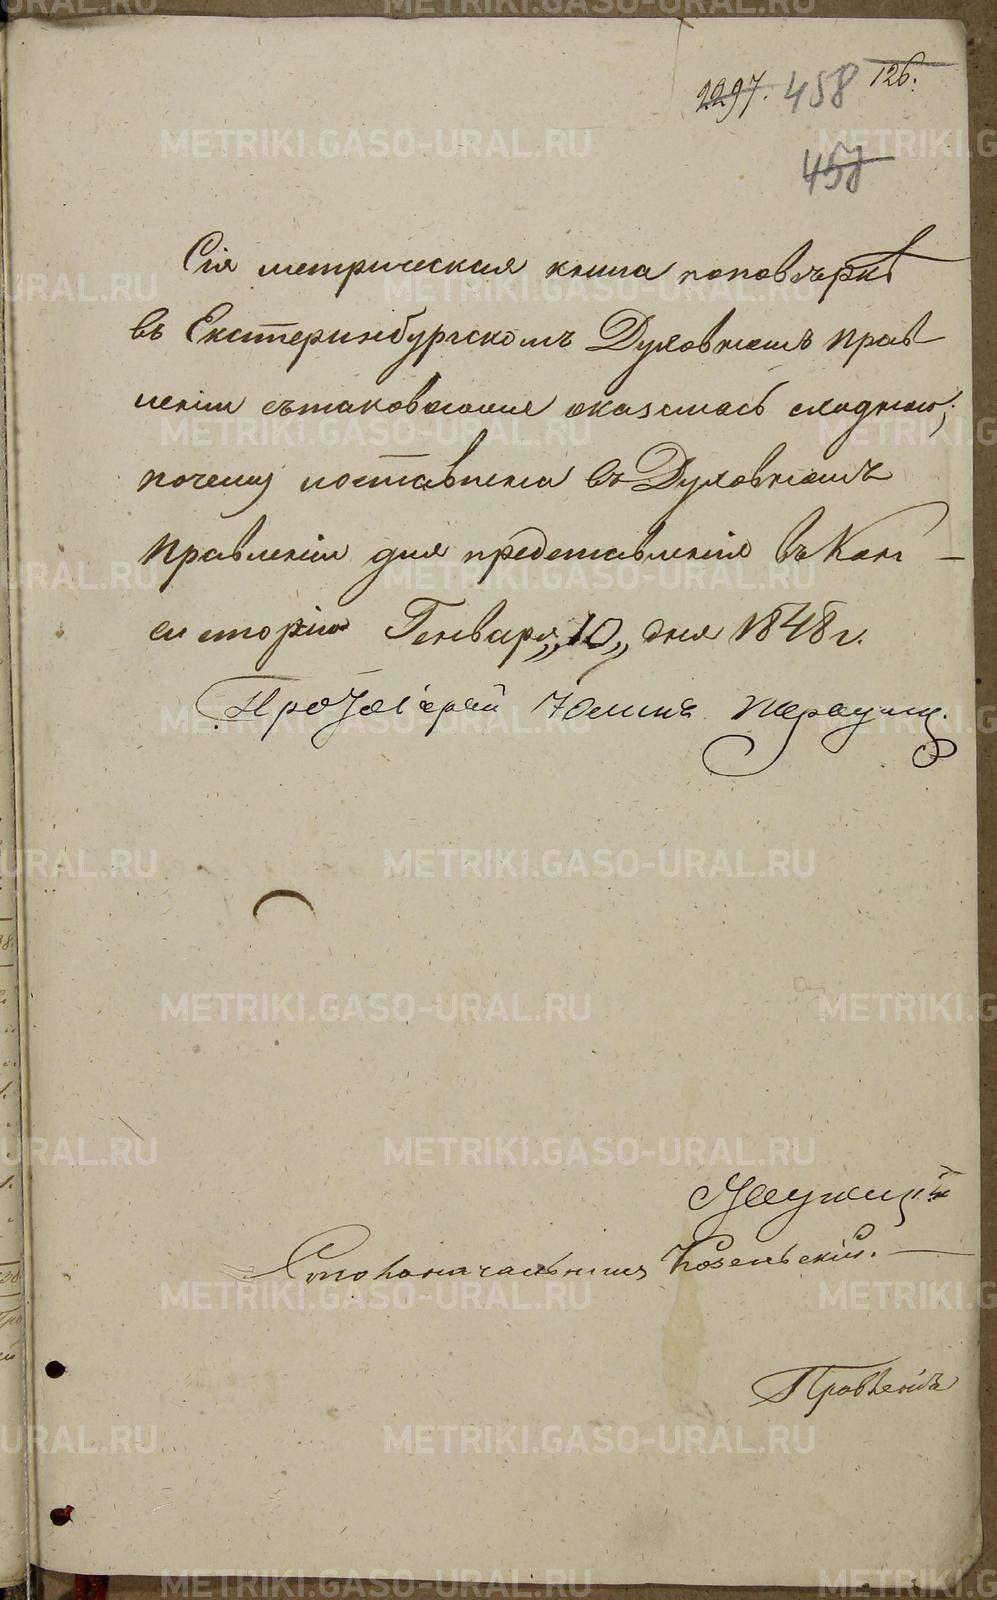 2297. 458 126.
458
Сія метрическая книга поповѣркѣ
въ Екатеринбургскомъ Духовномъ Прав
леніи сътаковоюже оказалась сходною;
почему и оставлена въ Духовномъ
Правленіи для представленія въ Кон—
систорію Генваря „10„ дня 1848 г.
Протоіерей
Столоначальникъ Козельскій.
Правленія
METRIKI.GASO-URAL.RU